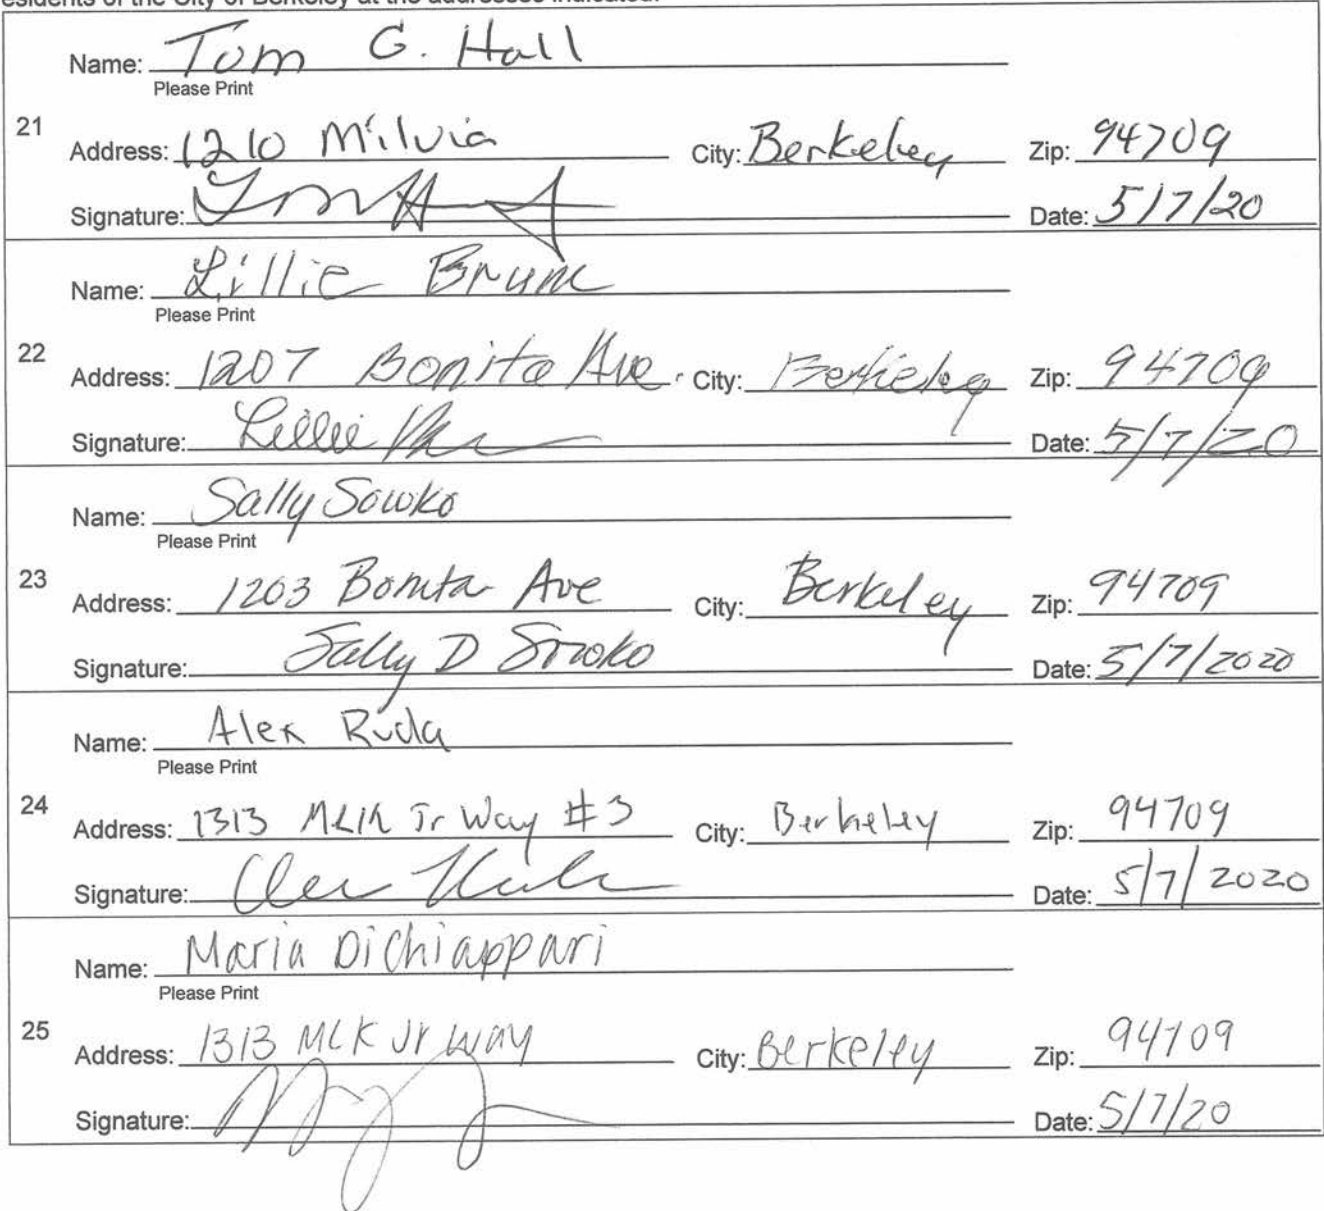 esidents of the City of Berkeley at the addresses indicated.
Name: Tom G. Hall
Please Print
21
Address: 1210 Milvia City: Berkeley Zip: 94709
Signature: Date: 5/7/20
Name: Lillie Brum
Please Print
22
Address: 1207 Bonita Ave. City: Berkeley Zip: 94709
Signature: Lillie Date: 5/7/20
Name: Sally Sowko
Please Print
23
Address: 1203 Bonita Ave City: Berkeley Zip: 94709
Signature: Sally D Sowko Date: 5/7/2020
Name: Alex Ruda
Please Print
24
Address: 1313 MLK Jr Way #3 City: Berkeley Zip: 94709
Signature: Date: 5/7/2020
Name: Maria DiChiappari
Please Print
25
Address: 1313 MLK Jr Way City: Berkeley Zip: 94709
Signature: Date: 5/7/20